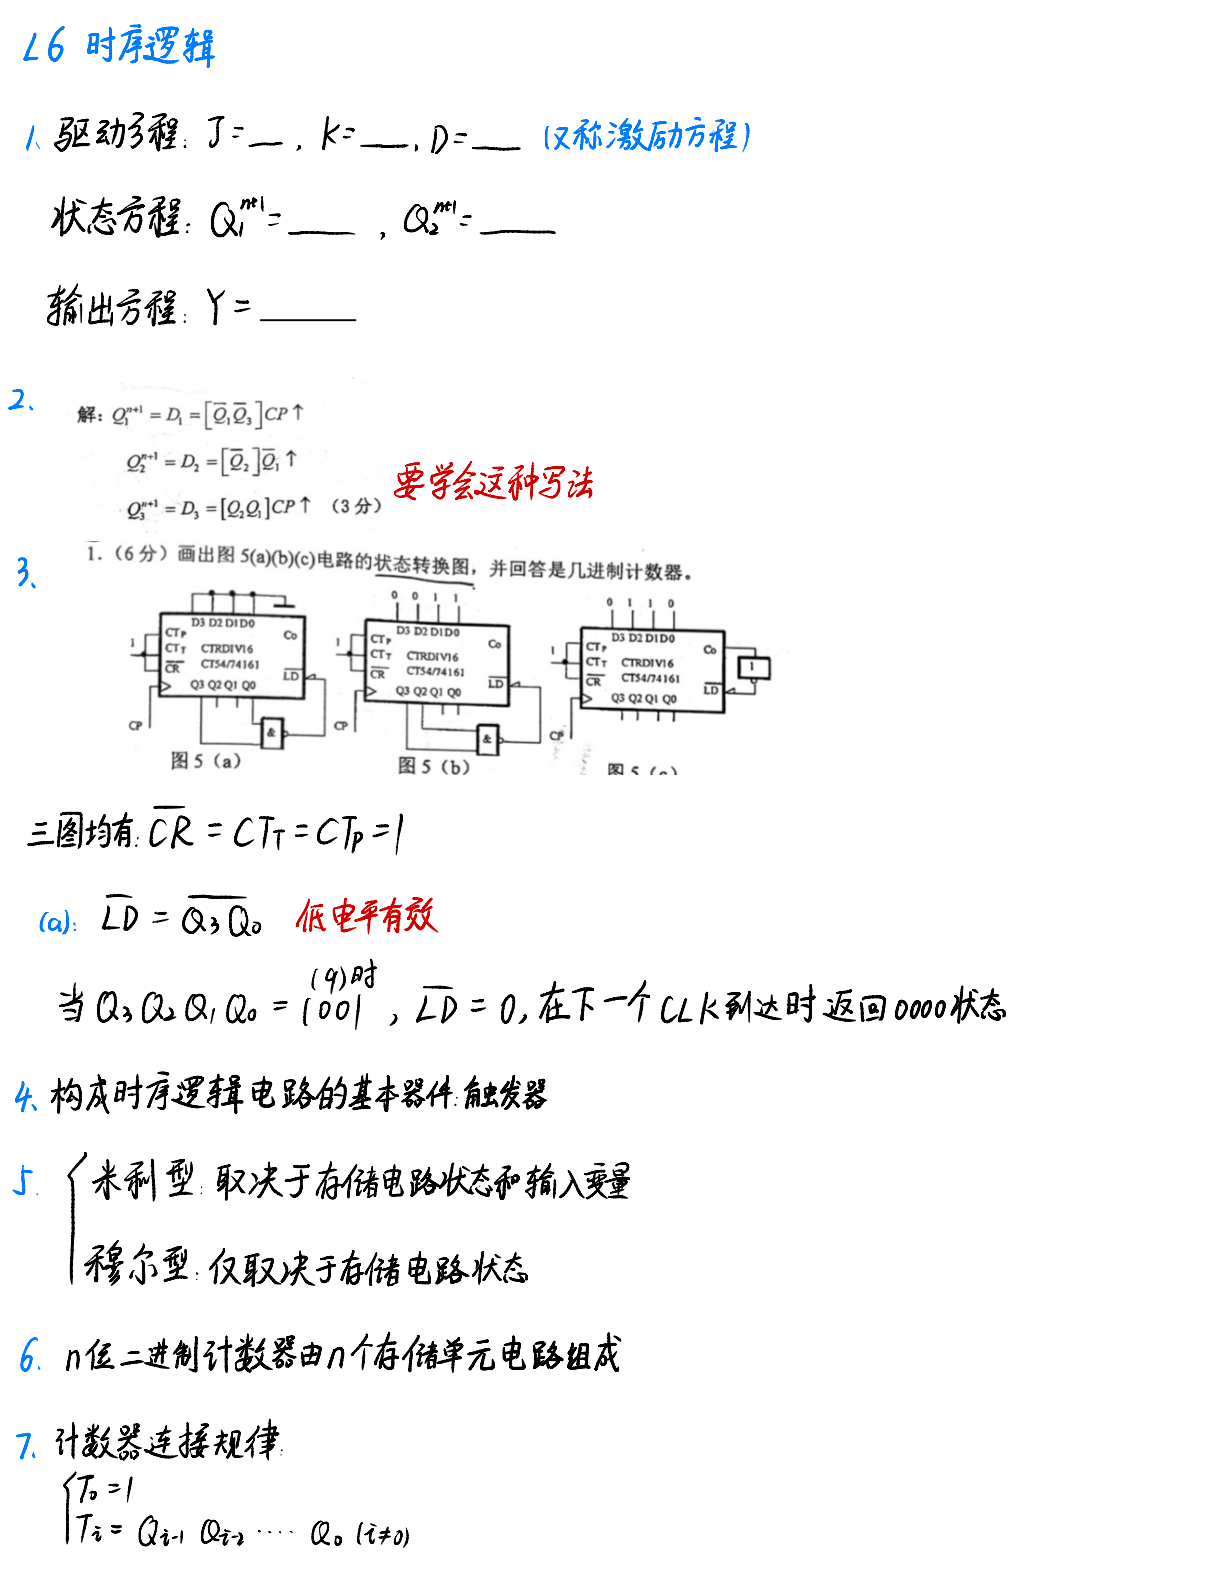 L6 时序逻辑
1、驱动方程: J=__, K=__, D=__ (又称激励方程)
状态方程: Q₁ⁿ⁺¹=____, Q₂ⁿ⁺¹=____
输出方程: Y=_____
2、
解: Q₁ⁿ⁺¹ = D₁ = [Q̅₁Q̅₃]CP↑
Q₂ⁿ⁺¹ = D₂ = [Q̅₂]Q̅₁↑
要学会这种写法
Q₃ⁿ⁺¹ = D₃ = [Q₂Q₁]CP↑ (3分)
3、
1. (6分) 画出图 5(a)(b)(c)电路的状态转换图, 并回答是几进制计数器。
D3 D2 D1 D0
CTP
Co
1
CTT
CTRDIV16
CR̅
CT54/74161
LD̅
Q3 Q2 Q1 Q0
CP
&
图 5 (a)
0 0 1 1
D3 D2 D1 D0
CTP
Co
1
CTT
CTRDIV16
CR̅
CT54/74161
LD̅
Q3 Q2 Q1 Q0
CP
&
图 5 (b)
0 1 1 0
D3 D2 D1 D0
CTP
Co
1
CTT
CTRDIV16
1
CR̅
CT54/74161
LD̅
Q3 Q2 Q1 Q0
CP
图 5 (c)
三图均有: C̅R̅ = CT_T = CT_P = 1
(a): L̅D̅ = \overline{Q₃Q₀} 低电平有效
(9)时
当 Q₃Q₂Q₁Q₀ = 1001, L̅D̅ = 0, 在下一个CLK到达时返回0000状态
4、构成时序逻辑电路的基本器件: 触发器
5. { 米利型: 取决于存储电路状态和输入变量
穆尔型: 仅取决于存储电路状态
6. n位二进制计数器由n个存储单元电路组成
7、计数器连接规律:
{ T₀ = 1
Tᵢ = Qᵢ₋₁ Qᵢ₋₂ ···· Q₀ (i≠0)